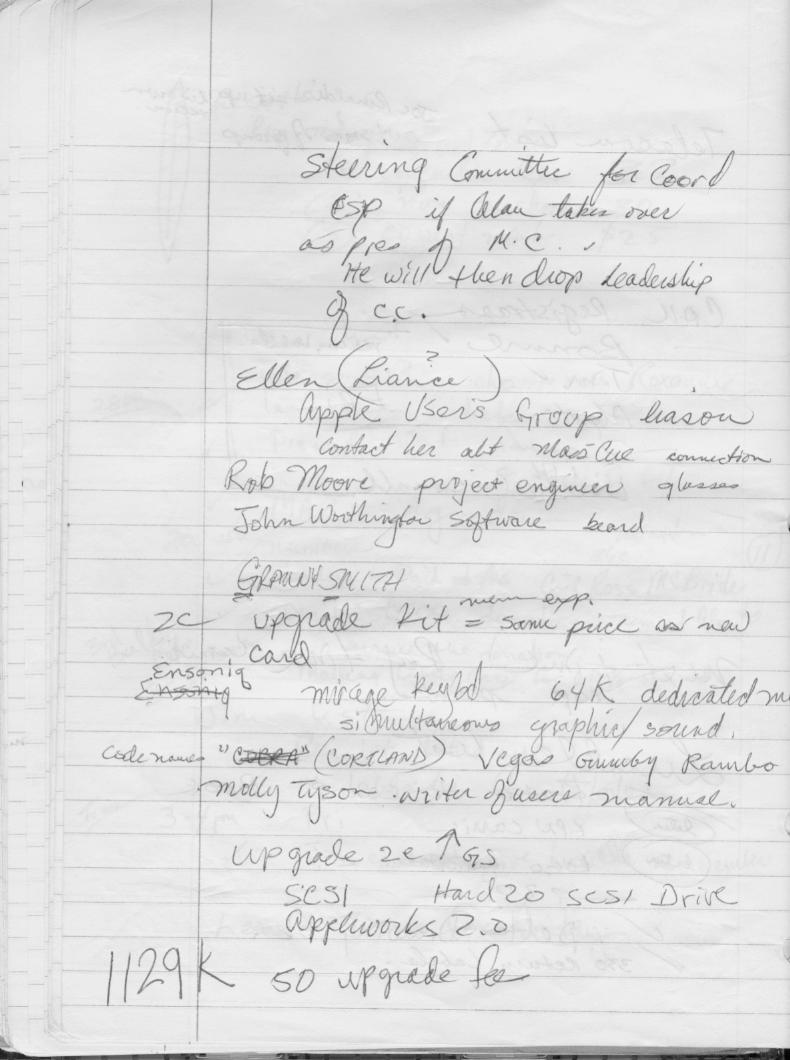 Steering Committee for Coord
esp if Alan takes over
as pres of M.C.
He will then drop leadership
of C.C.
?
Ellen (Liance)
Apple Users Group liason
contact her abt MassCue connection
Rob Moore project engineer glasses
John Worthington Software beard
GRANNY SMITH
mem exp.
2C upgrade kit = same price as new
card
Ensoniq
Ensoniq mirage keybd 64K dedicated m
simultaneous graphic/sound.
Code names "COBRA" (CORTLAND) Vegas Gumby Rambo
Molly Tyson . writer of users manual.
upgrade 2e ↑ GS
SCSI Hard 20 SCSI Drive
Appleworks 2.0
1129K 50 upgrade fee